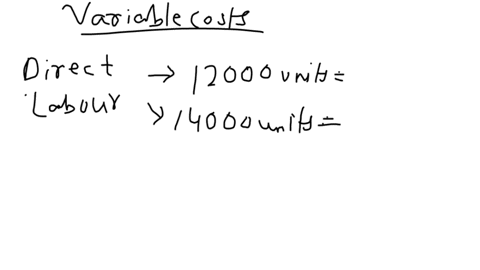 Variable costs
Direct → 12000 units =
Labour → 14000 units =